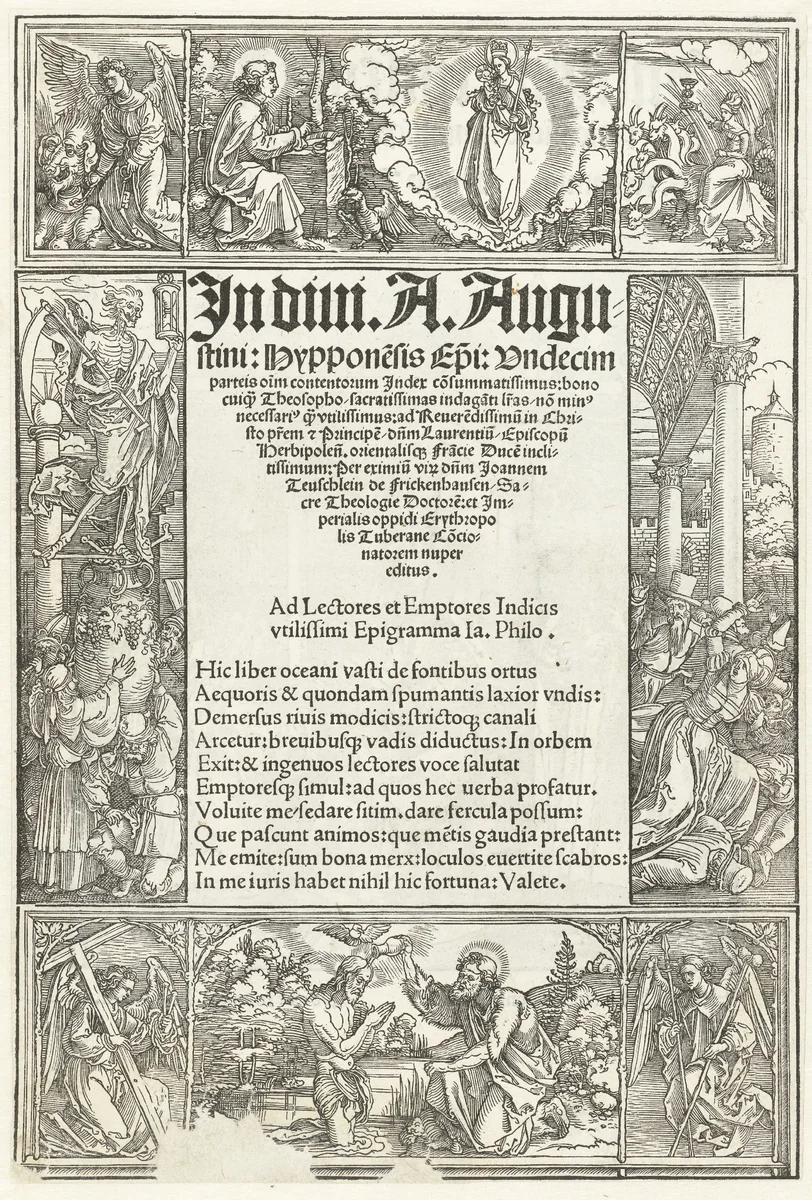 In diui. A. Augu⸗
stini: Hypponēsis Ep̄i: Vndecim
parteis oīm contentorum Index cōsummatissimus: bono
cuiqꝫ Theosopho/ sacratissimas indagāti lr̄as/ nō minꝰ
necessariꝰ qͣꝫ vtilissimus: ad Reuerēdissimū in Chri⸗
sto pr̄em ⁊ Principē/ dn̄m Laurentiū/ Episcopū
Herbipoleñ. orientalisqꝫ Frācie Ducē incli⸗
tissimum: Per eximiū virꝫ dn̄m Joannem
Teuschlein de Frickenhausen/ Sa⸗
cre Theologie Doctorē: et Im⸗
perialis oppidi Erythropo
lis Tuberane Cōcio⸗
natorem nuper
editus.
Ad Lectores et Emptores Indicis
vtilissimi Epigramma Ia. Philo.
Hic liber oceani vasti de fontibus ortus
Aequoris & quondam spumantis laxior vndis:
Demersus riuis modicis: strictoqꝫ canali
Arcetur: breuibusqꝫ vadis diductus: In orbem
Exit: & ingenuos lectores voce salutat
Emptoresqꝫ simul: ad quos hec uerba profatur.
Voluite me/ sedare sitim. dare fercula possum:
Que pascunt animos: que mētis gaudia prestant:
Me emite: sum bona merx: loculos euertite scabros:
In me iuris habet nihil hic fortuna: Valete.